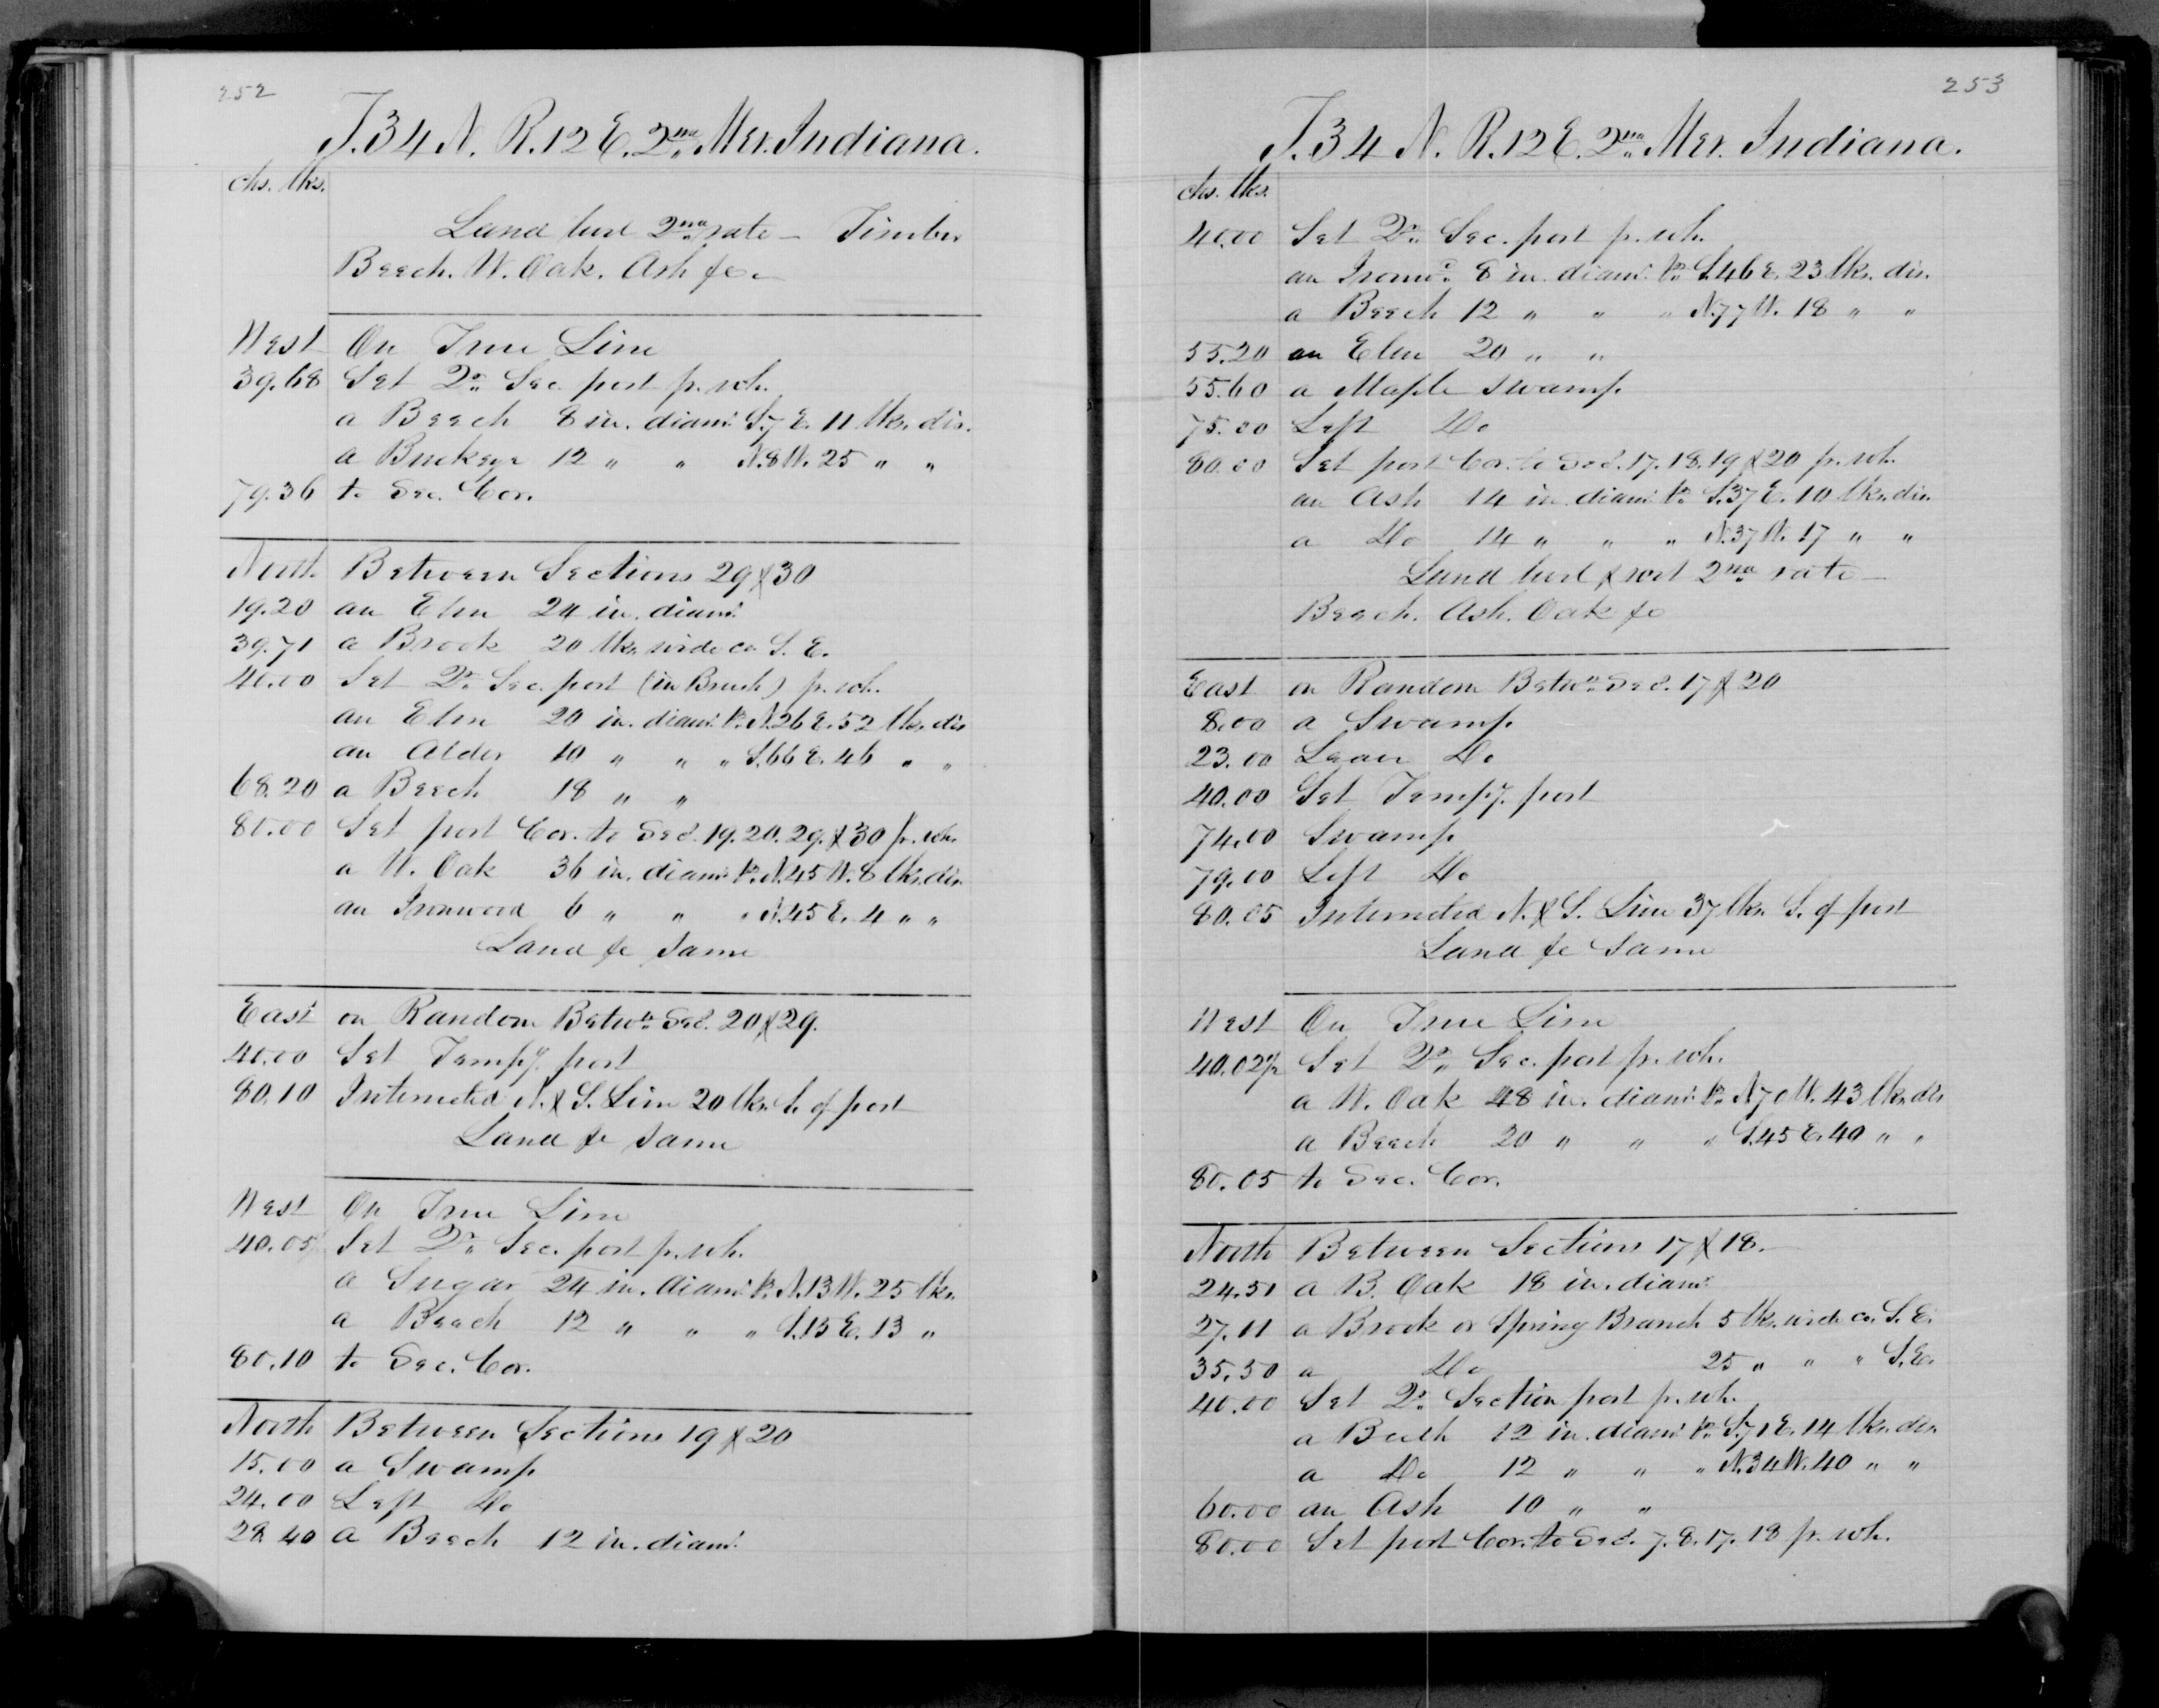 252
T. 34 N. R. 12 E. 2nd Mer. Indiana.
chs. lks.
Land level 2nd rate – Timber
Beech. W. Oak. Ash &c.
West On True Line
39.68 Set Qr. Sec. post fr. wh.
a Beech 8 in. diamr. S. 7 E. 11 lks. dis.
a Buckeye 12 " " N. 8 W. 25 " "
79.36 to Sec. Cor.
North Between Sections 29 & 30
19.20 an Elm 24 in. diamr.
39.71 a Brook 20 lks. wide co. S. E.
40.00 Set Qr. Sec. post (in Brush) fr. wh.
an Elm 20 in. diamr. br. N. 26 E. 52 lks. dis
an Alder 10 " " " S. 66 E. 46 " "
68.20 a Beech 18 " "
80.00 Set post Cor. to Secs. 19. 20. 29. & 30 fr. wh.
a W. Oak 36 in. diamr. br. N. 45 W. 8 lks. dis.
an Ironwood 6 " " " N. 45 E. 4 " "
Land &c same
East on Random Betwn. Secs. 20 & 29.
40.00 Set Tempy. post
80.10 Intersected N. & S. Line 20 lks. S. of post
Land &c same
West On True Line
40.05 Set Qr. Sec. post fr. wh.
a Sugar 24 in. diamr. br. N. 13 W. 25 lks.
a Beech 12 " " " S. 15 E. 13 "
80.10 to Sec. Cor.
North Between Sections 19 & 20
15.00 a Swamp
24.00 Left Do
28.40 a Beech 12 in. diamr.
253
T. 34 N. R. 12 E. 2nd Mer. Indiana.
chs. lks.
40.00 Set Qr. Sec. post fr. wh.
an Ironwd. 8 in. diamr. br. S. 46 E. 23 lks. dis.
a Beech 12 " " " N. 77 W. 18 " "
55.20 an Elm 20 " "
55.60 a Maple swamp
75.00 Left Do
80.00 Set post Cor. to Secs. 17. 18. 19 & 20 fr. wh.
an Ash 14 in. diamr. br. S. 37 E. 10 lks. dis.
a Do 14 " " " N. 37 W. 17 " "
Land level & wet 2nd rate –
Beech. Ash. Oak &c
East on Random Betwn. Secs. 17 & 20
8.00 a Swamp
23.00 Leave Do
40.00 Set Tempy. post
74.00 Swamp
79.00 Left Do
80.05 Intersected N. & S. Line 37 lks. S. of post
Land &c same
West On True Line
40.02½ Set Qr. Sec. post fr. wh.
a W. Oak 48 in. diamr. br. N. 70 W. 43 lks. dis
a Beech 20 " " " S. 45 E. 40 " "
80.05 to Sec. Cor.
North Between Sections 17 & 18.
24.51 a B. Oak 18 in. diamr.
27.11 a Brook or Spring Branch 5 lks. wide co. S. E.
35.50 a Do 25 " " " S. E.
40.00 Set Qr. Section post fr. wh.
a Beech 12 in. diamr. br. S. 71 E. 14 lks. dis.
a Do 12 " " " N. 34 W. 40 " "
60.00 an Ash 10 " "
80.00 Set post Cor. to Secs. 7. 8. 17. 18 fr. wh.